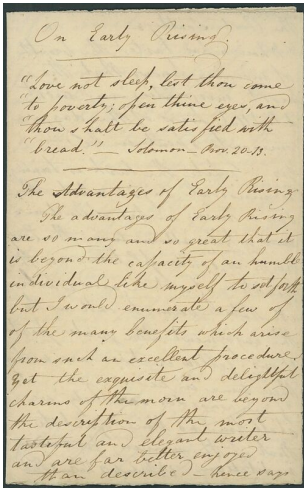 On Early Rising.
"Love not sleep, lest thou come
"to poverty; open thine eyes, and
"thou shalt be satisfied with
"bread." Solomon – Prov. 20-13.
The Advantages of Early Rising
The advantages of Early Rising
are so many and so great that it
is beyond the capacity of an humble
individual like myself to set forth
but I would enumerate a few of
of the many benefits which arise
from such an excellent procedure.
Yet the exquisite and delightful
charms of the morn are beyond
the description of the most
tasteful and elegant writer
and are far better enjoyed
than described – hence says